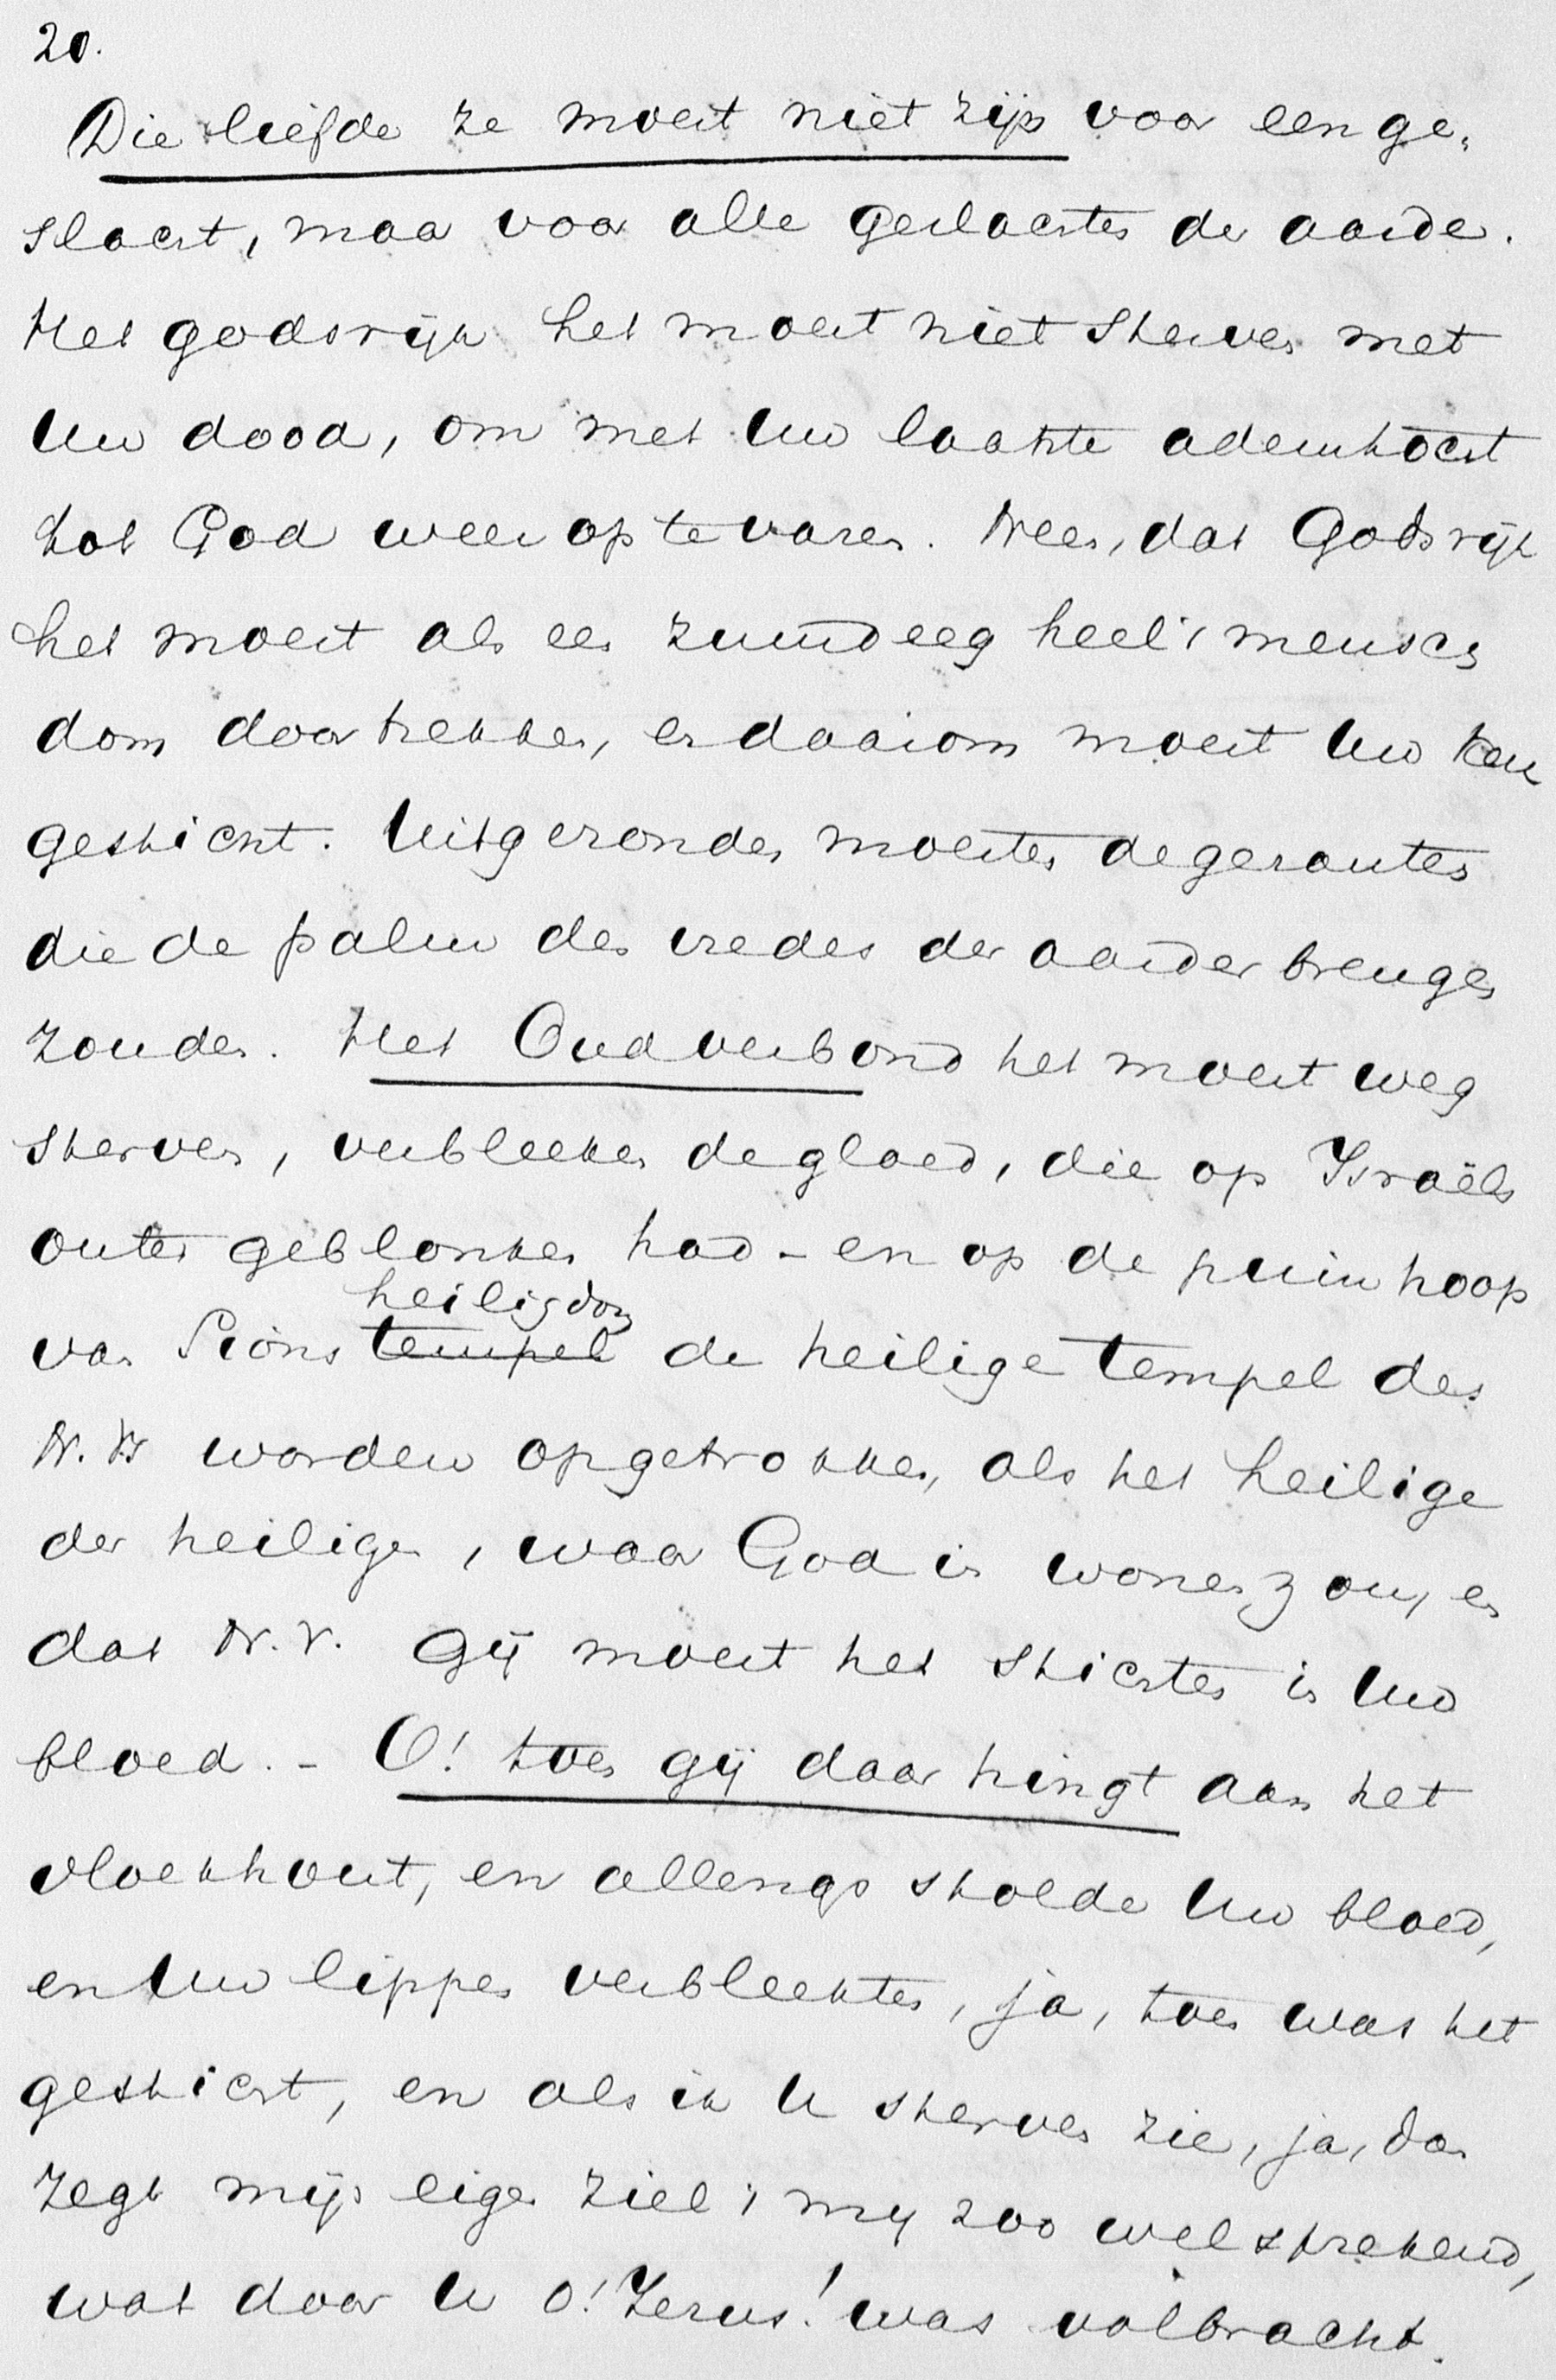 20.
Die liefde ze moest niet zijn voor een ge„
slacht, maar voor alle geslachten der aarde.
Het godsrijk het moest niet sterven met
Uw dood, om met Uw laatste ademtocht
tot God weer op te varen. Neen, dat Godsrijk
het moest als een zuurdeeg heel 't mensch
dom doortrekken, en daarom moest Uw kerk
gesticht. Uitgezonden moesten de gezanten
die de palm des vredes der aarde brengen
zouden. Het Oud verbond het moest weg
sterven, verbleeken de gloed, die op Israëls
outer geblonken had - en op de puinhoop
van Sions ~~tempel~~ heiligdom de heilige tempel des
N. Vs worden opgetrokken, als het heilige
der heiligen, waar God in wonen zou, en
dat N. V. Gij moest het stichten in Uw
bloed. - O! toen gij daar hingt aan het
vloekhout, en allengs stolde Uw bloed,
en Uw lippen verbleekten, ja, toen was het
gesticht, en als ik U sterven zie, ja, dan
zegt mijn eigen ziel 't mij zoo welsprekend,
wat door U o! Jezus! was volbracht.